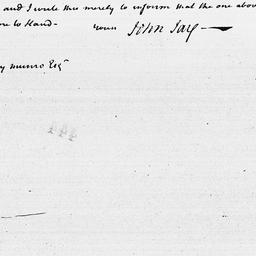 and I write this merely to inform that the one abov
to Hand—
yours John Jay—
y Munro Esqr
444